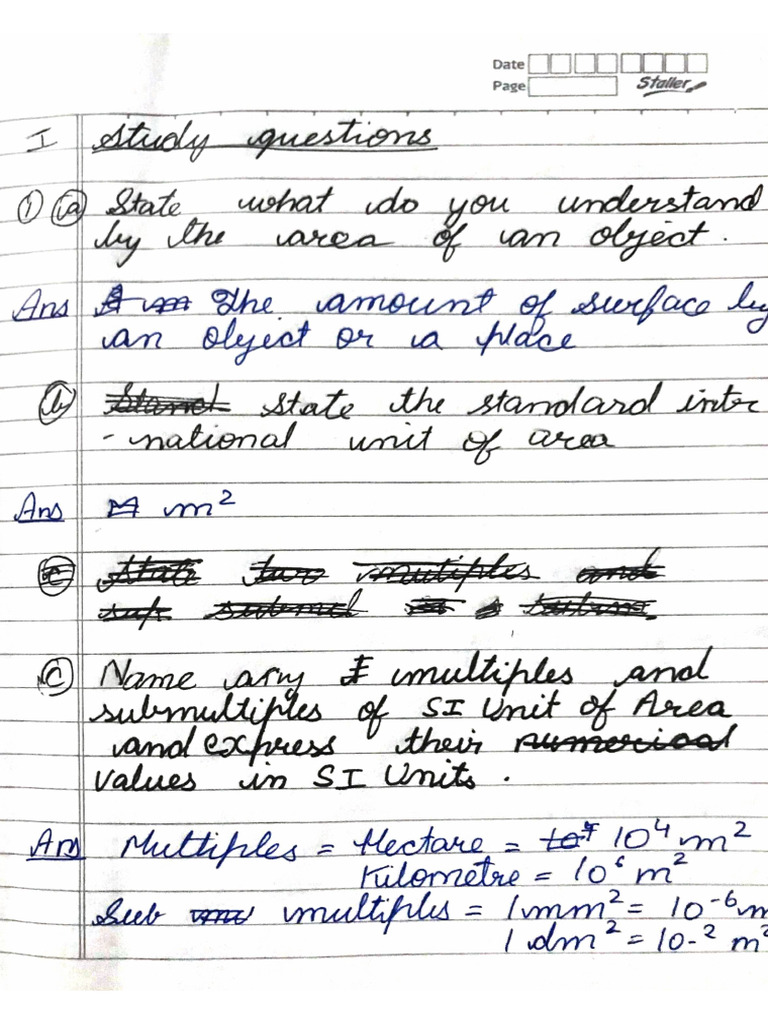 Date
Page
Staller
I Study questions
① ⓐ State what do you understand
by the area of an object.
Ans The amount of surface by
an object or a place
ⓑ State the standard inter
-national unit of area
Ans m²
ⓒ State two mutiples and
ⓒ Name any multiples and
submultiples of SI Unit of Area
and express their numerical
values in SI Units.
Ans Multiples = Hectare = 10⁴ m²
Kilometre = 10⁶ m²
Sub multiples = 1 mm² = 10⁻⁶ m
1 dm² = 10-² m²